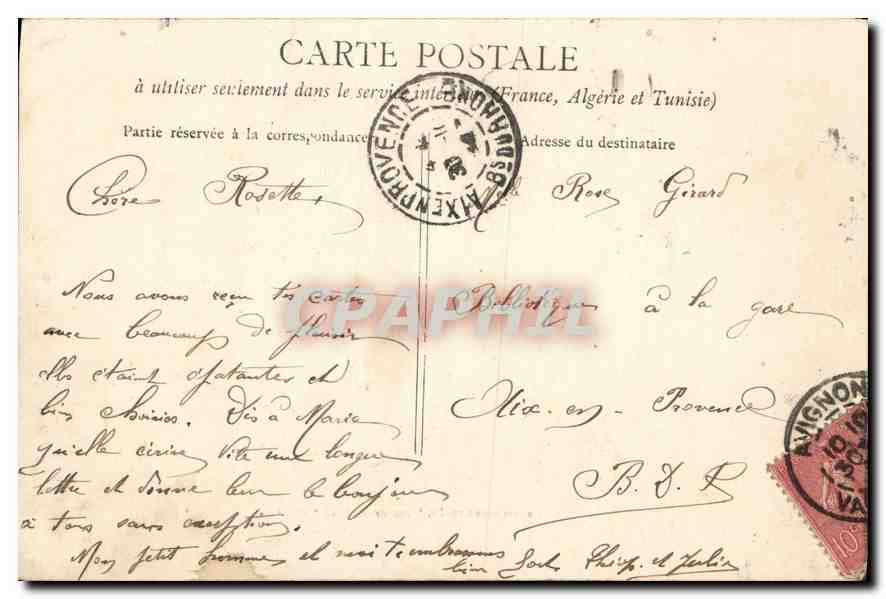 CARTE POSTALE
à utiliser seulement dans le service intérieur (France, Algérie et Tunisie)
Partie réservée à la correspondance
Adresse du destinataire
AIX EN PROVENCE
Bs DU RHONE
Chère Rosette,
Nous avons reçu tes cartes
avec beaucoup de plaisir
elles étaint épatantes et
bien choisies. Dis à Marie
qu'elle écrive vite une longue
lettre et donne leur le bonjour
à tous sans exception
Mon petit homme et moi t'embrassons
bien fort et Julia
Melle Rose Girard
Bibliotèque à la gare
Aix-en-Provence
B. D. R
AVIGNON
VA
10c
CPAPHIL